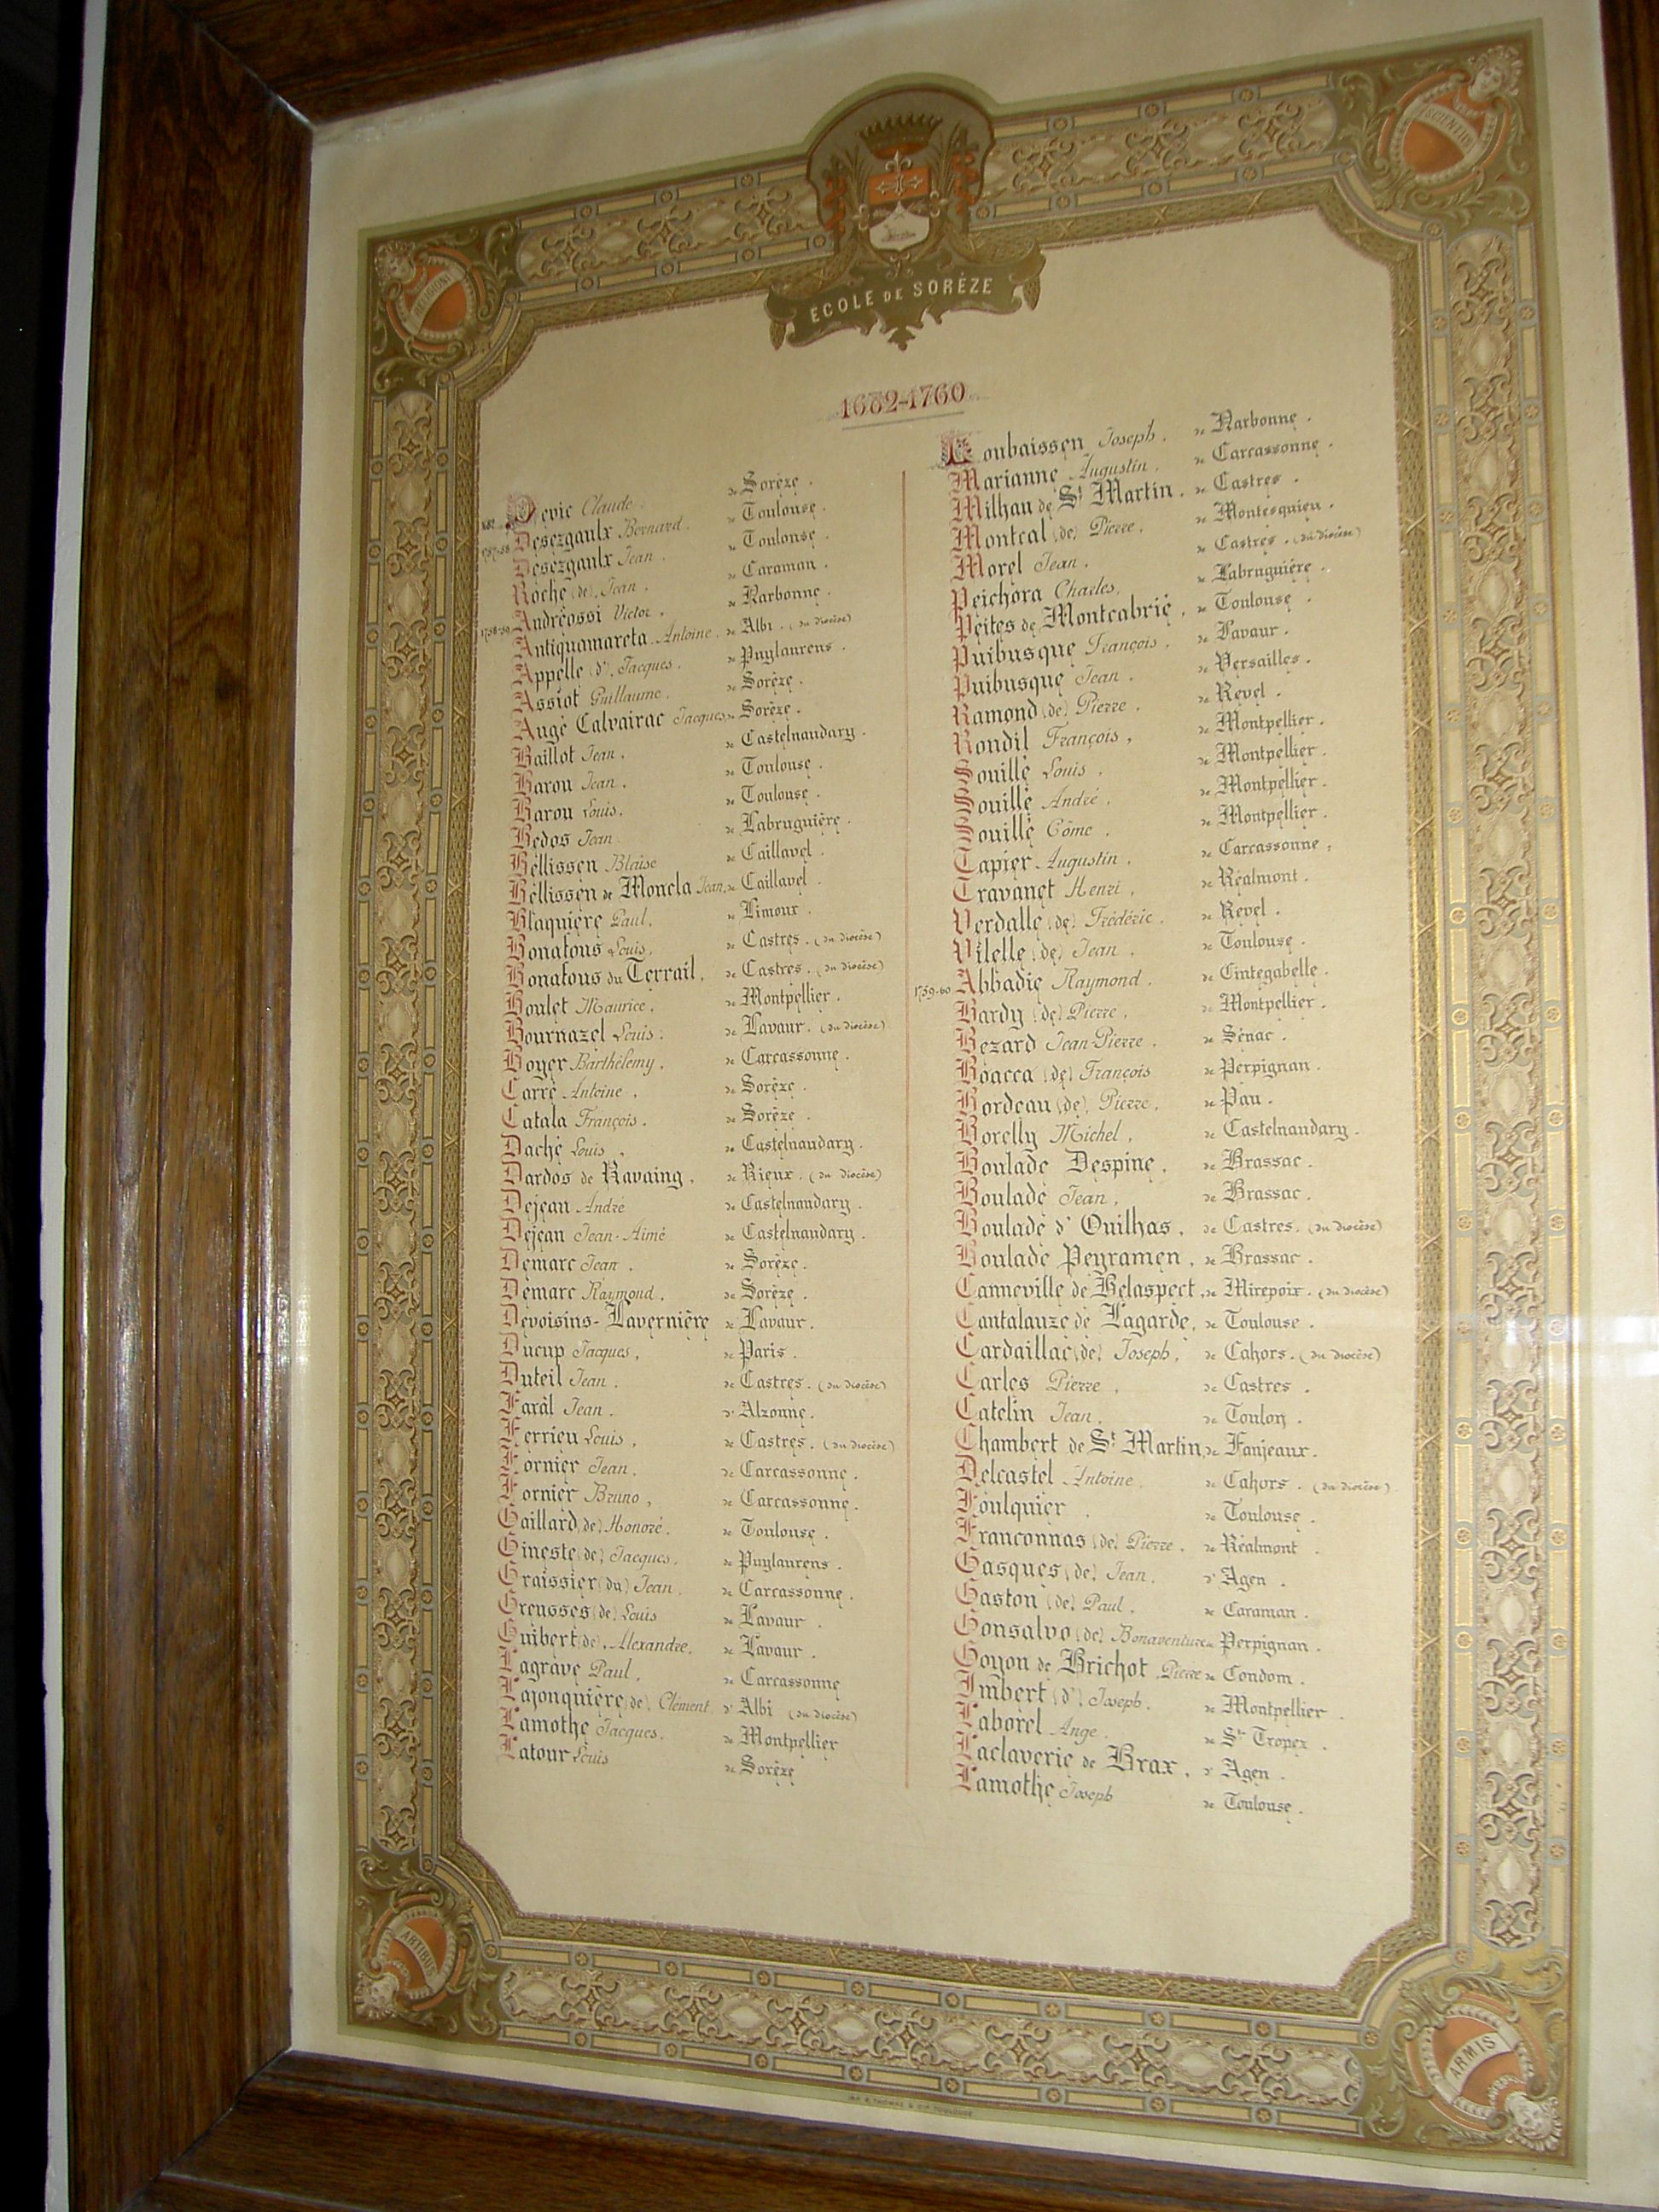 RELIGIONI
SCIENTIÆ
ECOLE DE SORÈZE
1682-1760
1682 Devic Claude. de Sorèze.
1757-58 Desezgaulx Bernard. de Toulouse.
Desezgaulx Jean. de Toulouse.
Roche (de) Jean. de Caraman.
1758-59 Andréossi Victor. de Narbonne.
Antiquamareta Antoine. de Albi. (du diocèse)
Appelle (d') Jacques. de Puylaurens.
Assiot Guillaume. de Sorèze.
Augé Calvairac Jacques. de Sorèze.
Baillot Jean. de Castelnaudary.
Barou Jean. de Toulouse.
Barou Louis. de Toulouse.
Bedos Jean. de Labruguière.
Bellissen Blaise de Caillavel.
Bellissen de Moncla Jean. de Caillavel.
Blaquière Paul. de Limoux.
Bonafous Louis. de Castres. (du diocèse)
Bonafous du Terrail. de Castres. (du diocèse)
Boulet Maurice. de Montpellier.
Bournazel Louis. de Lavaur. (du diocèse)
Boyer Barthélemy. de Carcassonne.
Carré Antoine. de Sorèze.
Catala François. de Sorèze.
Daché Louis. de Castelnaudary.
Dardos de Ravaing. de Rieux. (du diocèse)
Dejean André de Castelnaudary.
Dejean Jean-Aimé de Castelnaudary.
Démarc Jean. de Sorèze.
Démarc Raymond. de Sorèze.
Devoisins-Lavernière de Lavaur.
Ducup Jacques. de Paris.
Duteil Jean. de Castres. (du diocèse)
Faral Jean. d' Alzonne.
Ferrieu Louis. de Castres. (du diocèse)
Fornier Jean. de Carcassonne.
Fornier Bruno. de Carcassonne.
Gaillard (de) Honoré. de Toulouse.
Gineste (de) Jacques. de Puylaurens.
Graissier (du) Jean. de Carcassonne.
Greusses (de) Louis de Lavaur.
Guibert (de) Alexandre. de Lavaur.
Lagrave Paul. de Carcassonne
Lajonquière (de) Clément. d' Albi (du diocèse)
Lamothe Jacques. de Montpellier
Latour Louis de Sorèze
Loubaissen Joseph. de Narbonne.
Marianne Augustin. de Carcassonne.
Milhau de St Martin. de Castres.
Montcal (de) Pierre. de Montesquieu.
Morel Jean. de Castres. (du diocèse)
Peichora Charles. de Labruguière.
Peites de Montcabrié. de Toulouse.
Puibusque François. de Lavaur.
Puibusque Jean. de Versailles.
Ramond (de) Pierre. de Revel.
Roudil François. de Montpellier.
Souillé Louis. de Montpellier.
Souillé André. de Montpellier.
Souillé Côme. de Montpellier.
Tapier Augustin. de Carcassonne.
Travanet Henri. de Réalmont.
Verdalle (de) Frédéric. de Revel.
Vilelle (de) Jean. de Toulouse.
1759-60 Abbadie Raymond. de Cintegabelle.
Bardy (de) Pierre. de Montpellier.
Bezard Jean-Pierre. de Sénac.
Boacca (de) François de Perpignan.
Bordeau (de) Pierre. de Pau.
Borelly Michel. de Castelnaudary.
Boulade Despine. de Brassac.
Boulade Jean. de Brassac.
Boulade d' Ouilhas. de Castres. (du diocèse)
Boulade Peyramen. de Brassac.
Canneville de Belaspect. de Mirepoix. (du diocèse)
Cantalauze de Lagarde. de Toulouse.
Cardaillac (de) Joseph. de Cahors. (du diocèse)
Carles Pierre. de Castres.
Catelin Jean. de Toulon.
Chambert de St Martin. de Fanjeaux.
Delcastel Antoine. de Cahors. (du diocèse)
Foulquier. de Toulouse.
Franconnas (de) Pierre. de Réalmont.
Gasques (de) Jean. d' Agen.
Gaston (de) Paul. de Caraman.
Gonsalvo (de) Bonaventure de Perpignan.
Goyon de Brichot Pierre de Condom.
Imbert (d') Joseph. de Montpellier.
Laborel Ange. de St Tropez.
Laclaverie de Brax. d' Agen.
Lamothe Joseph de Toulouse.
ARTIBUS
ARMIS